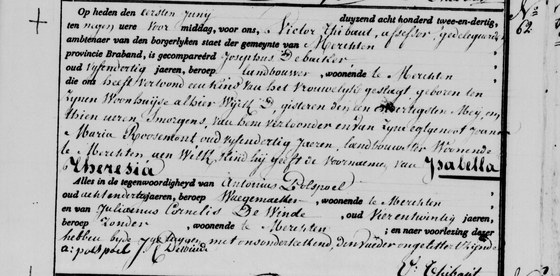 Op heden den eersten Juny duyzend acht honderd twee-en-dertig, N.º
ten negen uere voor middag, voor ons, Victor Thibaut, assesser gedelegueerde 62.
ambtenaer van den borgerlyken staet der gemeynte van Merchten
provincie Braband, is gecompareérd Josephus De backer
oud vyfendertig jaeren, beroep landbouwer, woonende te Merchten
die ons heeft vertoond een kind van het vrouwelyk geslagt geboren ten
zynen Woonhuyse alhier Wyk D, gisteren den een endertigsten Mey, om
thien uren, Smorgens, van hem vertoonder en van zyne egtgenoot Joanna
Maria Roosemont oud vyfendertig jaeren, landbouwster Woonende
te Merchten, aen Welk kind hy geeft de voornaemen van Isabella
Theresia
Alles in de tegenwoordigheyd van Antonius Polspoel
oud jaeren, beroep Waegemaeker, woonende te Merchten
en van Julianus Cornelis De Winde, oud vierentwintig jaeren,
beroep zonder, woonende te Merchten; en naer voorlezing dezer
hebben byde getuygen met ons onderteekend, den vader ongeletterd zynde
a: polspoel J. C. DeWinde
V: Thibaut